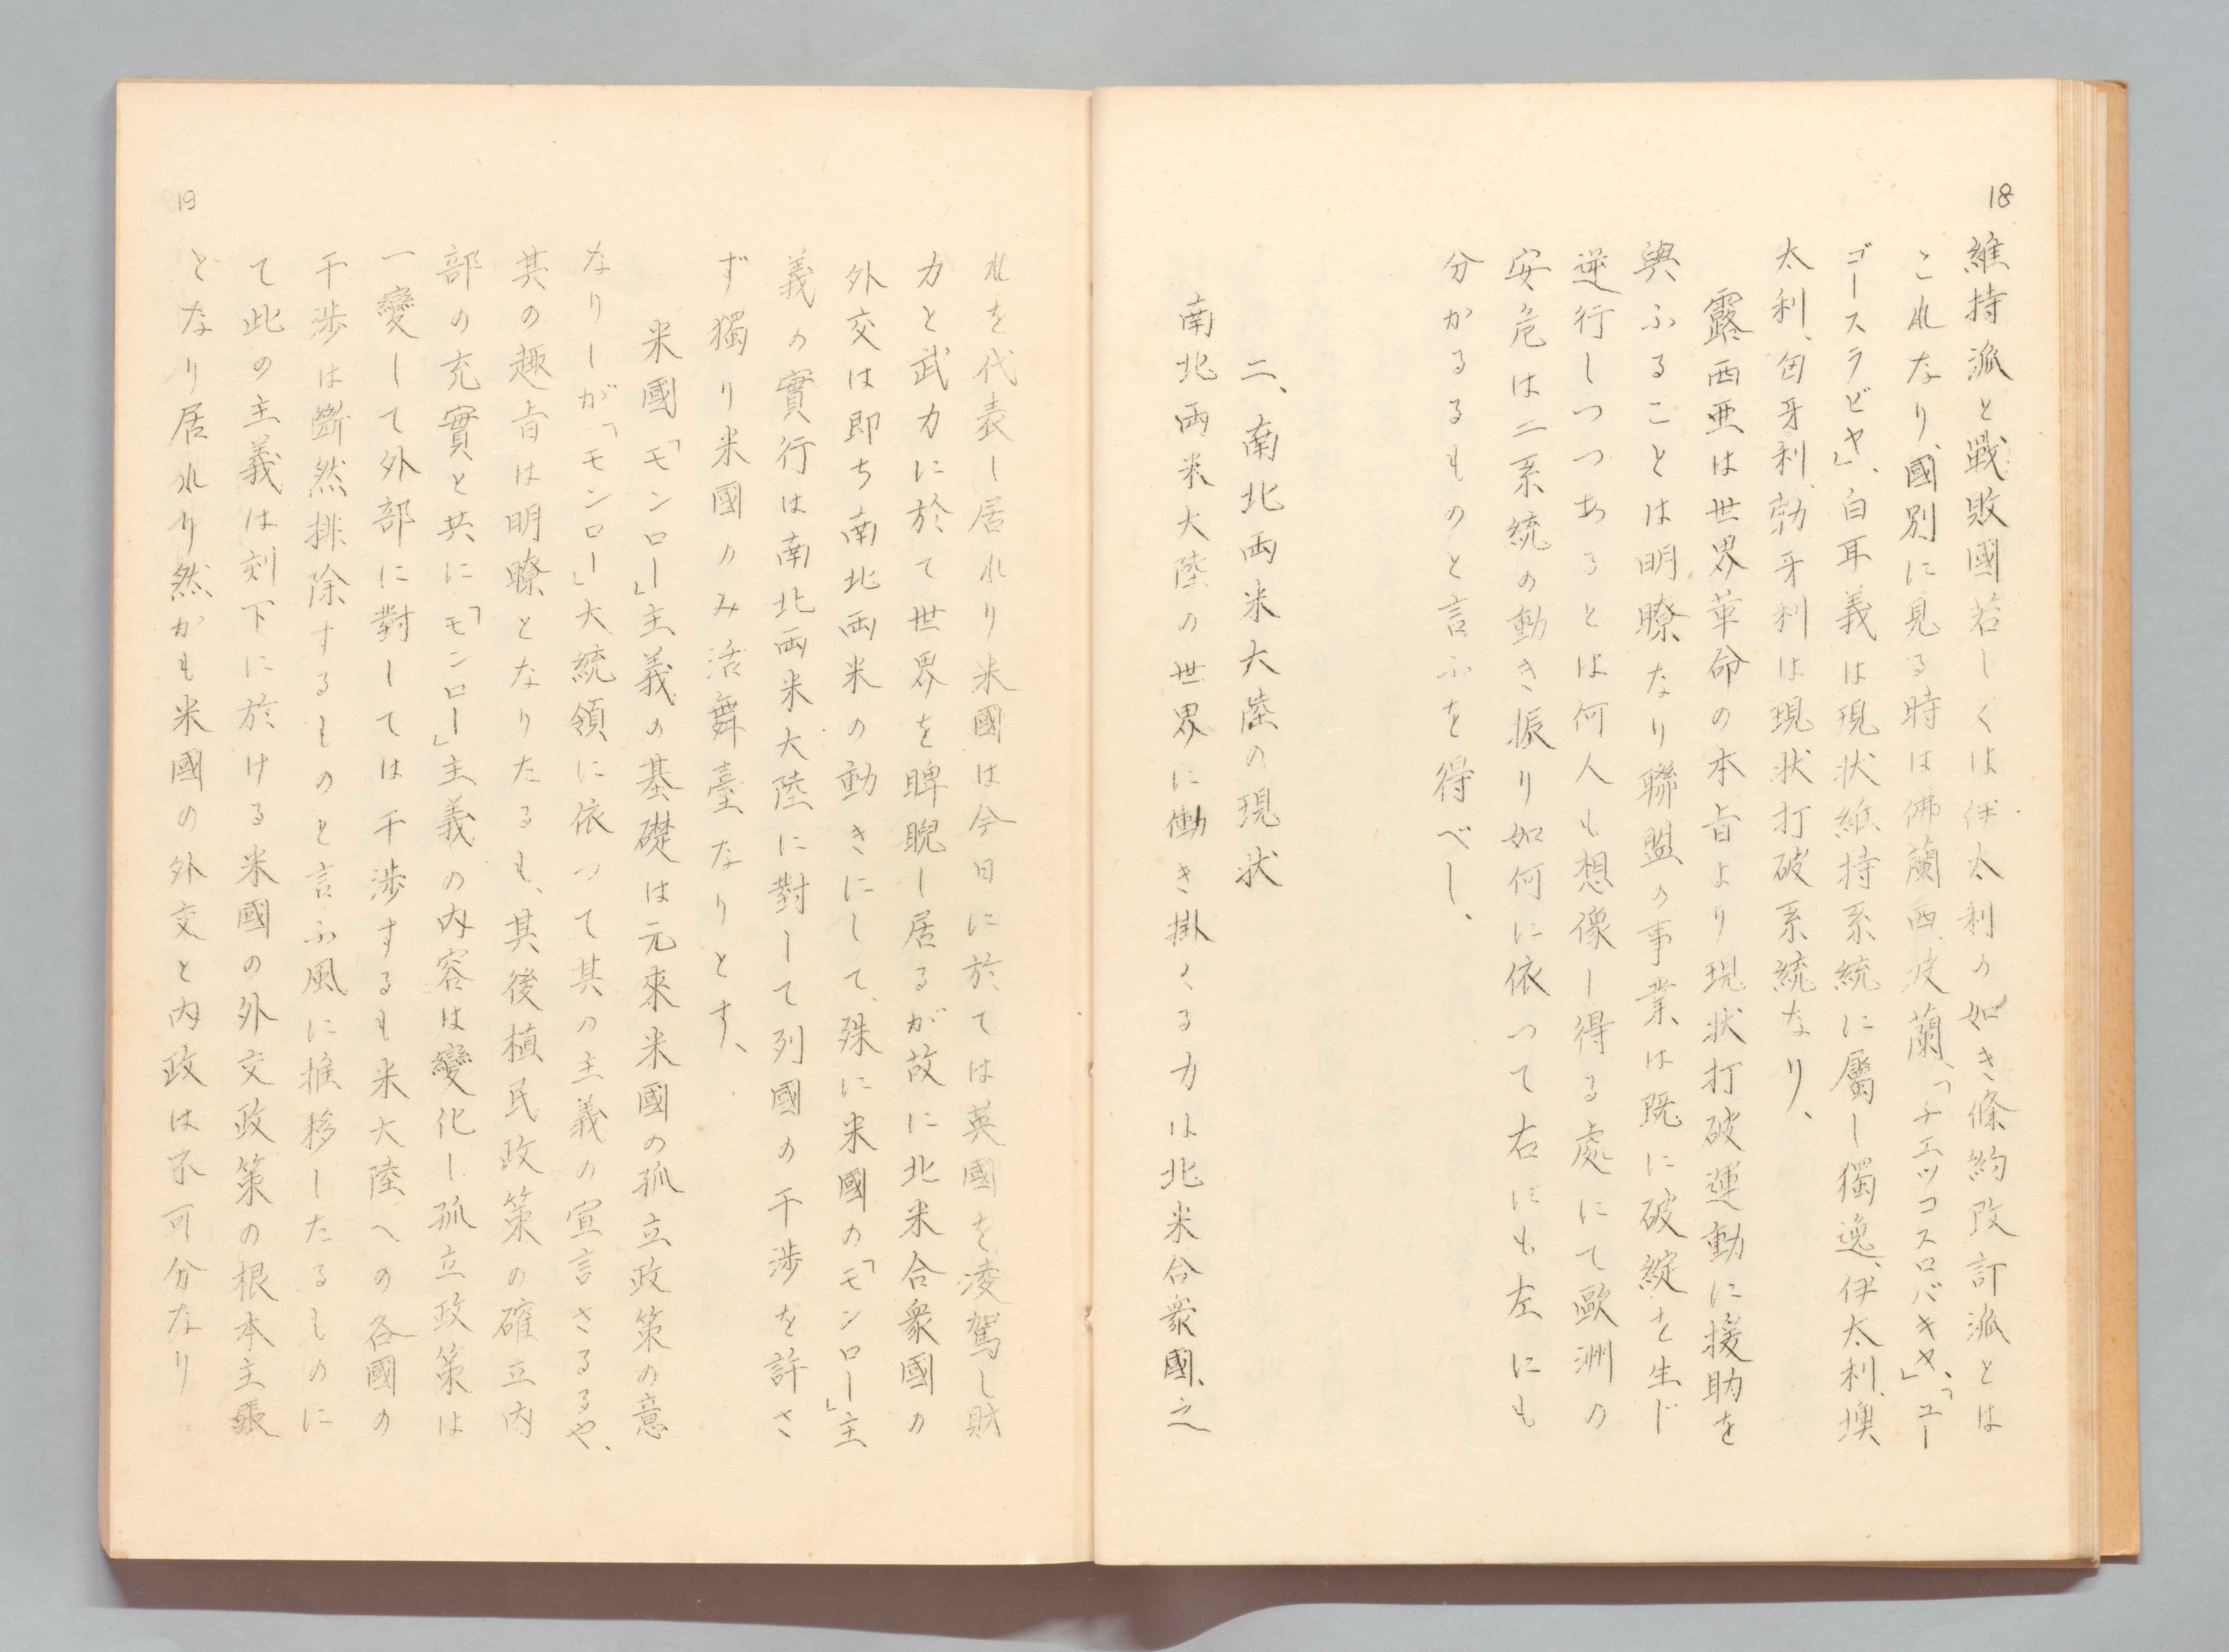 18
維持派と戰敗國若しくは伊太利の如き條約改訂派とは
これなり、國別に見る時は佛蘭西、波蘭、「チエツコスロバキヤ」、「ユー
ゴースラビヤ」、白耳義は現状維持系統に屬し獨逸、伊太利、墺
太利、匈牙利、勃牙利は現状打破系統なり、
露西亜は世界革命の本旨より現状打破運動に援助を
與ふることは明瞭なり聯盟の事業は既に破綻を生ド
逆行しつつあることは何人も想像し得る處にて歐洲の
安危は二系統の動き振り如何に依つて右にも左にも
分かるるものと言ふを得べし、
二、南北両米大陸の現状
南北両米大陸の世界に働き掛くる力は北米合衆國、之
れを代表し居れり米國は今日に於ては英國を凌駕し財
力と武力に於て世界を睥睨し居るが故に北米合衆國の
外交は即ち南北両米の動きにして、殊に米國の「モンロー」主
義の實行は南北両米大陸に對して列國の干渉を許さ
ず獨り米國のみ活舞臺なりとす、
米國「モンロー」主義の基礎は元來米國の孤立政策の意
なりしが「モンロー」大統領に依つて其の主義の宣言さるるや、
其の趣旨は明瞭となりたるも、其後植民政策の確立内
部の充實と共に「モンロー」主義の内容は變化し孤立政策は
一變して外部に對しては干渉するも米大陸への各國の
干渉は斷然排除するものと言ふ風に推移したるものに
て此の主義は刻下に於ける米國の外交政策の根本主張
となり居れり然かも米國の外交と内政は不可分なり
19